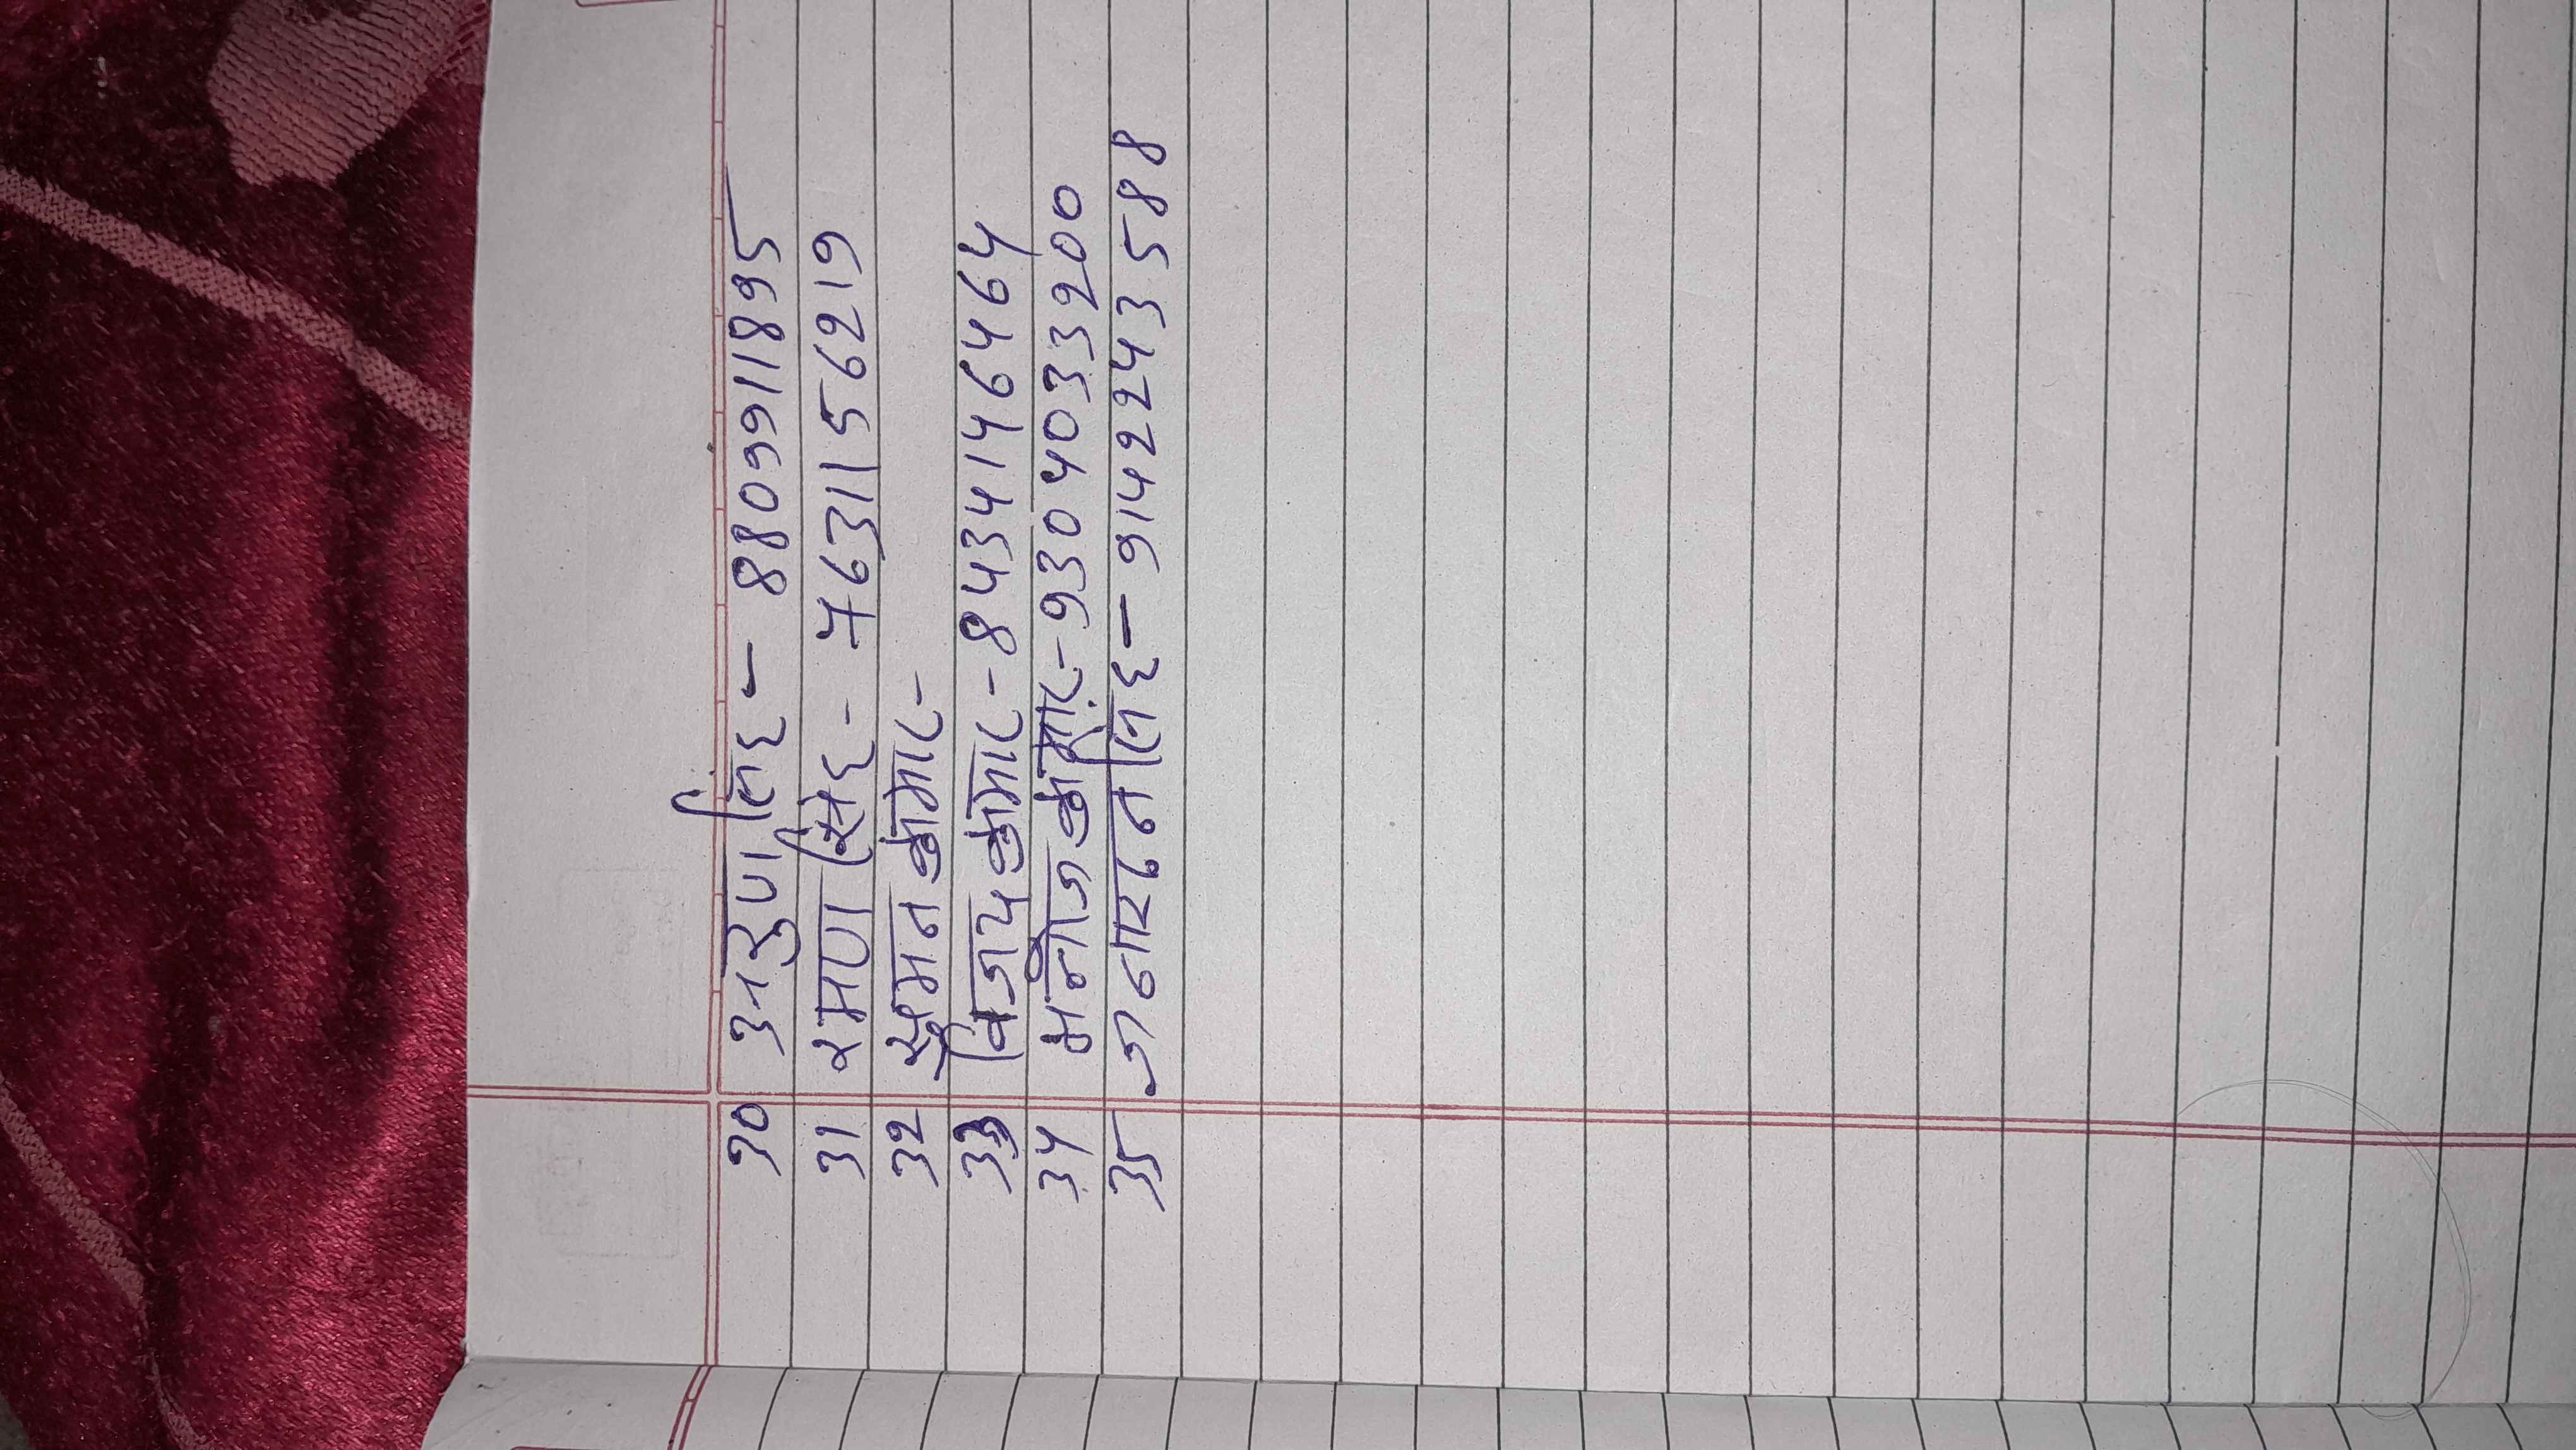 30 अरुण सिंह - 8809911895
31 रमण सिंह - 7631156219
32 सुमन कुमार -
33 विजय कुमार - 8434146464
34 मनोज कुमार - 9304033200
35 जनारदन सिंह - 9142243588